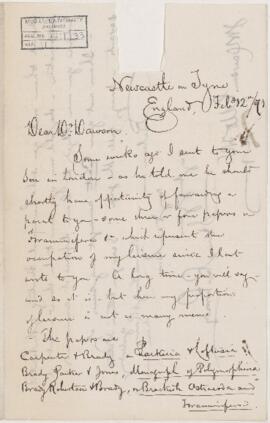 Newcastle on Tyne
England, Feb 12
Dear Dr Dawson,
Some weeks ago I sent to your
Son in London – as he told me he should
shortly have opportunity of forwarding a
parcel to you – some three or four papers on
Foraminifera &c, which represent the
occupation of my leisure since I last
wrote to you – A long time – you will say –
and so it is – but then my proportion
of leisure is not so many hours.
– The papers are
Carpenter & Brady on Parkeria & Loftusia
Brady Parker & Jones, Monograph of Polymorphina
Brady Robertson & Brady, on Brackish Ostracoda and
Foraminifera